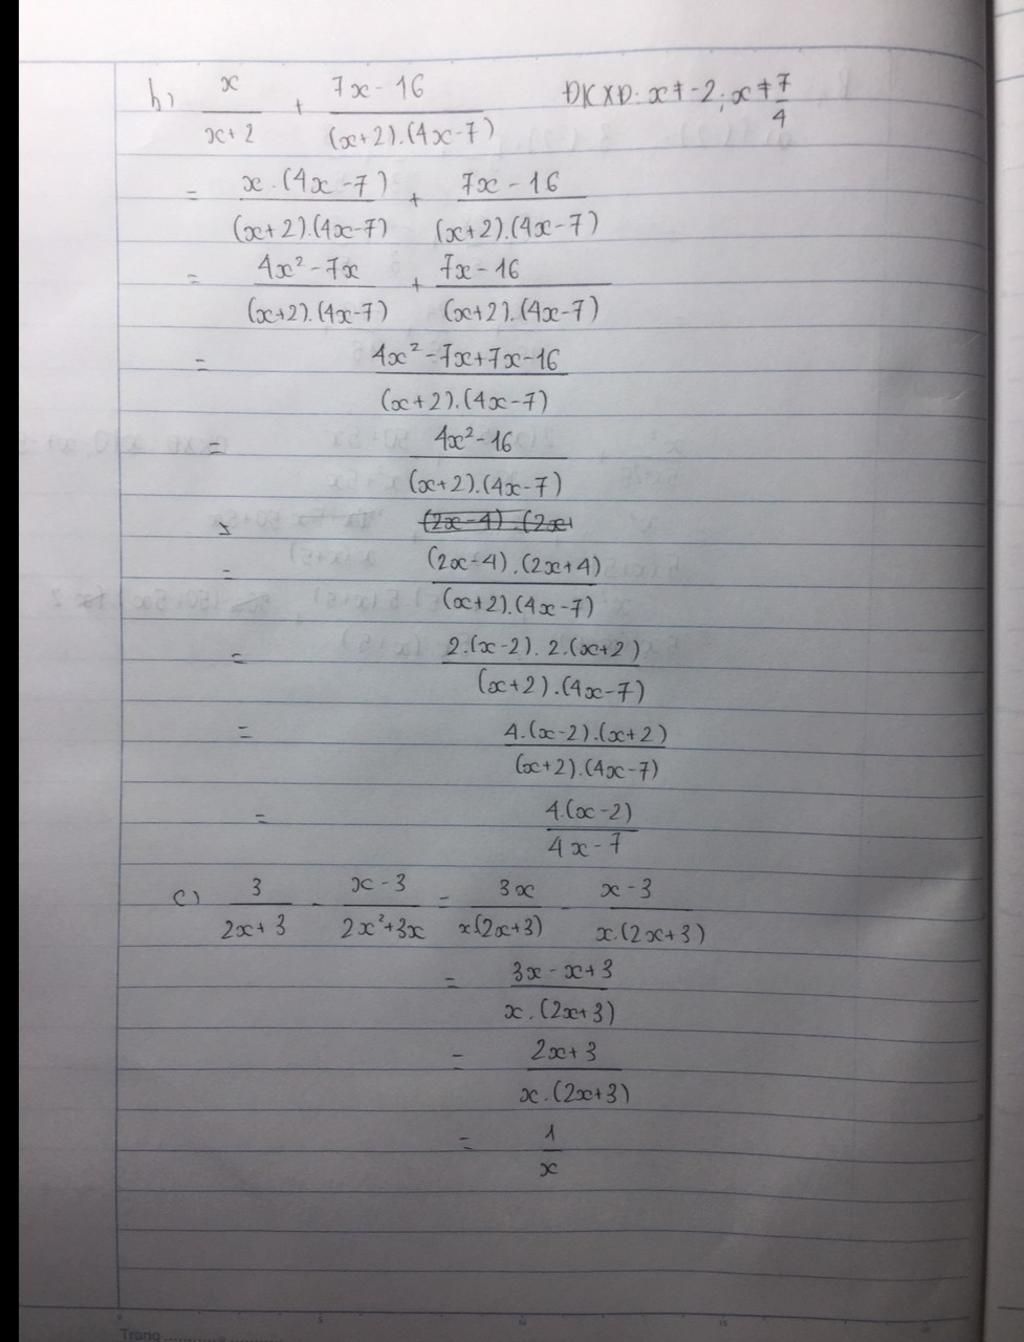 b) x/(x+2) + (7x-16)/((x+2).(4x-7)) ĐKXĐ: x≠-2; x≠7/4
= (x.(4x-7))/((x+2).(4x-7)) + (7x-16)/((x+2).(4x-7))
= (4x²-7x)/((x+2).(4x-7)) + (7x-16)/((x+2).(4x-7))
= (4x²-7x+7x-16)/((x+2).(4x-7))
= (4x²-16)/((x+2).(4x-7))
= ((2x-4).(2x+4))/((x+2).(4x-7))
= (2.(x-2).2.(x+2))/((x+2).(4x-7))
= (4.(x-2).(x+2))/((x+2).(4x-7))
= (4.(x-2))/(4x-7)
c) 3/(2x+3) - (x-3)/(2x²+3x) = 3x/(x(2x+3)) - (x-3)/(x.(2x+3))
= (3x-x+3)/(x.(2x+3))
= (2x+3)/(x.(2x+3))
= 1/x
Trang